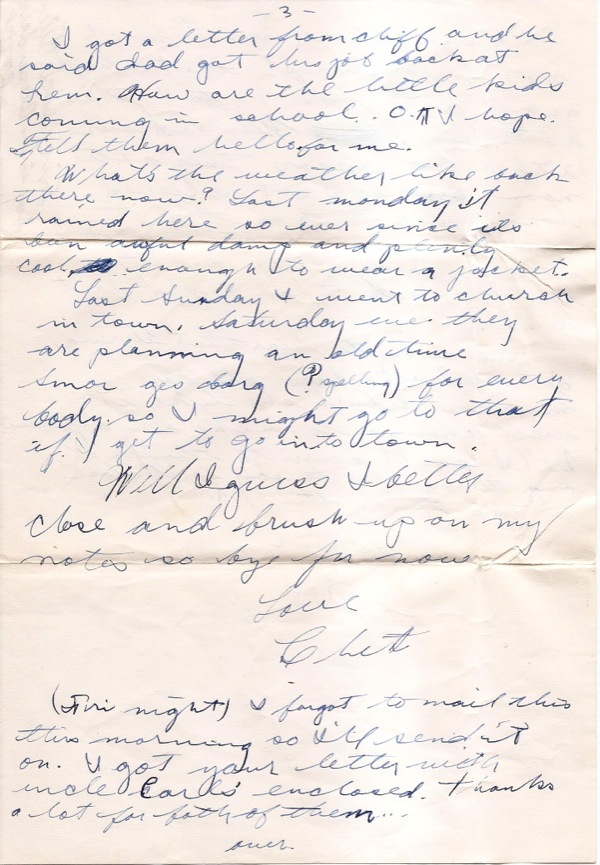 - 3 -
I got a letter from cliff and he
said dad got his job back at
hem. How are the little kids
coming in school. O.K I hope.
Tell them hello for me.
What's the weather like back
there now? Last monday it
rained here so ever since its
ben awful damp and plenty
cool, enough to wear a jacket.
Last Sunday I went to church
in town. Saturday eve they
are planning an old time
smor ges borg (? spelling) for every
body so I might go to that
if I get to go into town.
Well I guess I better
close and brush up on my
notes so bye for now
Love
Chet
(Fri night) I forgot to mail this
this morning so I'll send it
on. I got your letter with
uncle Carls enclosed. Thanks
a lot for both of them...
over.